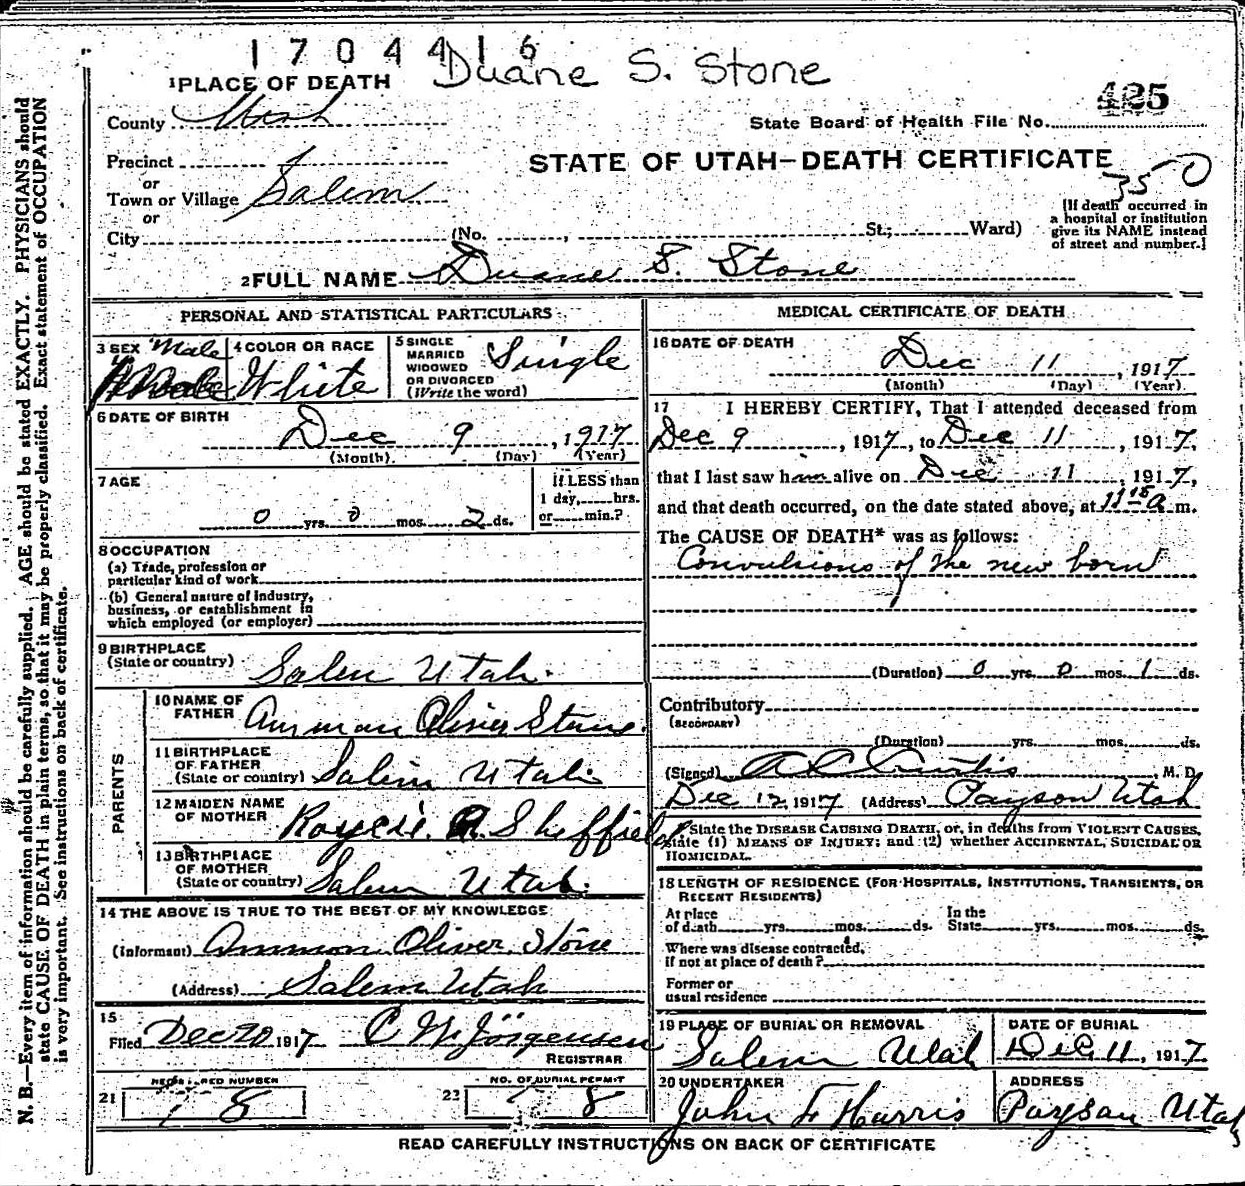 1704416
Duane S. Stone
1 PLACE OF DEATH
425
County Utah
State Board of Health File No.
Precinct
STATE OF UTAH—DEATH CERTIFICATE
350
or
Town or Village Salem
or
City (No. , St.; Ward)
[If death occurred in
a hospital or institution
give its NAME instead
of street and number.]
2 FULL NAME Duane S. Stone
PERSONAL AND STATISTICAL PARTICULARS
3 SEX Male
4 COLOR OR RACE White
5 SINGLE
MARRIED
WIDOWED
OR DIVORCED
(Write the word)
Single
6 DATE OF BIRTH
Dec 9, 1917
(Month) (Day) (Year)
7 AGE
If LESS than
1 day, hrs.
or min.?
0 yrs. 0 mos. 2 ds.
8 OCCUPATION
(a) Trade, profession or
particular kind of work
(b) General nature of industry,
business, or establishment in
which employed (or employer)
9 BIRTHPLACE
(State or country) Salem Utah.
PARENTS
10 NAME OF
FATHER Ammon Oliver Stone
11 BIRTHPLACE
OF FATHER
(State or country) Salem Utah
12 MAIDEN NAME
OF MOTHER Sheffield
13 BIRTHPLACE
OF MOTHER
(State or country) Salem Utah.
14 THE ABOVE IS TRUE TO THE BEST OF MY KNOWLEDGE
(Informant) Ammon Oliver Stone
(Address) Salem Utah
15
Filed Dec 20 1917 C W Jorgensen
REGISTRAR
REGISTERED NUMBER
21 8
NO. OF BURIAL PERMIT
22 8
MEDICAL CERTIFICATE OF DEATH
16 DATE OF DEATH
Dec 11, 1917
(Month) (Day) (Year)
17 I HEREBY CERTIFY, That I attended deceased from
Dec 9, 1917, to Dec 11, 1917,
that I last saw him alive on Dec 11, 1917,
and that death occurred, on the date stated above, at 11 15 a m.
The CAUSE OF DEATH* was as follows:
Convulsions of the new born
(Duration) 0 yrs. 0 mos. 1 ds.
Contributory
(SECONDARY)
(Duration) yrs. mos. ds.
(Signed) A C Curtis, M. D.
Dec 12, 1917 (Address) Payson Utah
*State the DISEASE CAUSING DEATH, or, in deaths from VIOLENT CAUSES,
state (1) MEANS OF INJURY; and (2) whether ACCIDENTAL, SUICIDAL OR
HOMICIDAL.
18 LENGTH OF RESIDENCE (FOR HOSPITALS, INSTITUTIONS, TRANSIENTS, OR
RECENT RESIDENTS)
At place
of death yrs. mos. ds.
In the
State yrs. mos. ds.
Where was disease contracted,
if not at place of death?
Former or
usual residence
19 PLACE OF BURIAL OR REMOVAL
Salem Utah
DATE OF BURIAL
Dec 11, 1917
20 UNDERTAKER
John F Harris
ADDRESS
Payson Utah
READ CAREFULLY INSTRUCTIONS ON BACK OF CERTIFICATE
N. B.—Every item of information should be carefully supplied. AGE should be stated EXACTLY. PHYSICIANS should
state CAUSE OF DEATH in plain terms, so that it may be properly classified. Exact statement of OCCUPATION
is very important. See instructions on back of certificate.